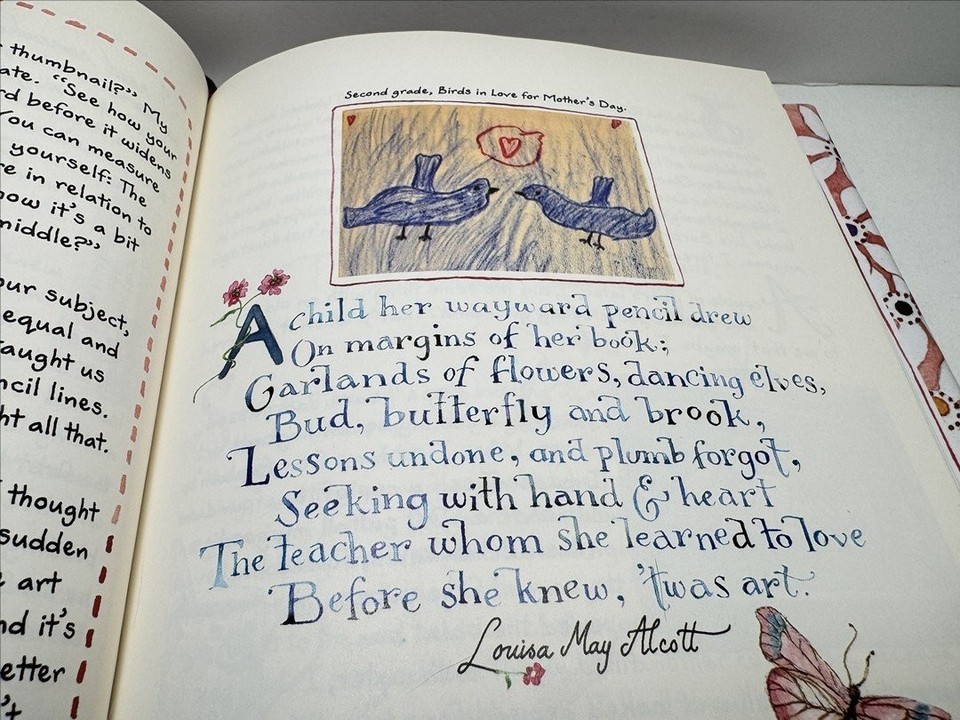 thumbnail?" My
ate. "See how your
rd before it widens
You can measure
yourself: The
re in relation to
how it's a bit
middle?"
our subject,
equal and
aught us
ncil lines.
ht all that.
thought
sudden
art
nd it's
etter
't
Second grade, Birds in Love for Mother's Day.
A child her wayward pencil drew
On margins of her book;
Garlands of flowers, dancing elves,
Bud, butterfly and brook,
Lessons undone, and plumb forgot,
Seeking with hand & heart
The teacher whom she learned to love
Before she knew, 'twas art.
Louisa May Alcott